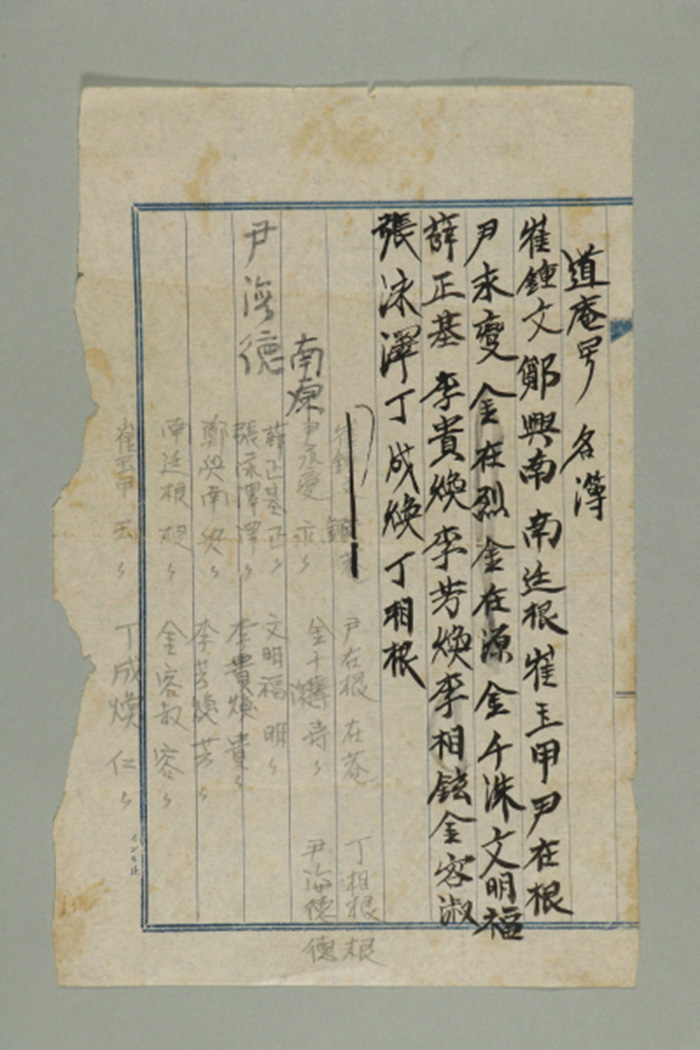 道庵号 名簿
崔鍾文 鄭興南 南廷根 崔玉甲 尹在根
尹永變 金在烈 金在源 金千洙 文明福
薛正基 李貴煥 李芳煥 李相鉉 金容淑
張泳澤 丁成煥 丁相根
丁相根 根
尹在根 在菴
南原
尹永變 永〃
金千洙
尹海德 德
薛正基 正〃
文明福 明〃
尹海德
張泳澤 澤〃
李貴煥 貴〃
鄭興南 興〃
李芳煥 芳〃
南廷根 根〃
金容淑 容〃
崔玉甲 玉〃
丁成煥 仁〃